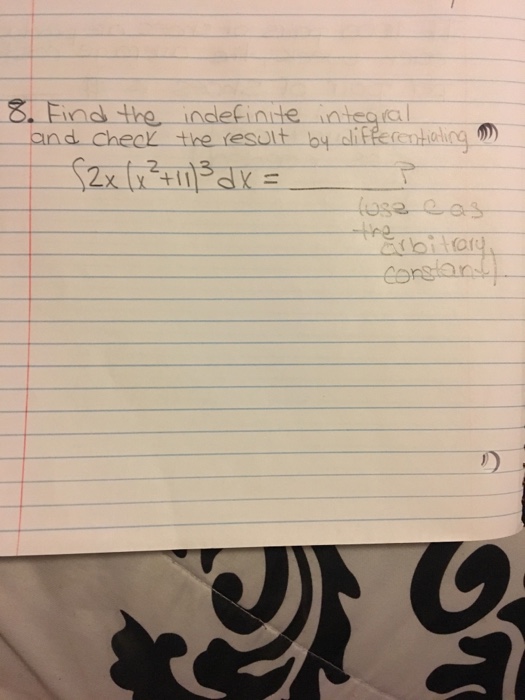 8. Find the indefinite integral
and check the result by differentialing
∫2x(x²+11)³dx = ________?
(use c as
the
arbitrary
constant).